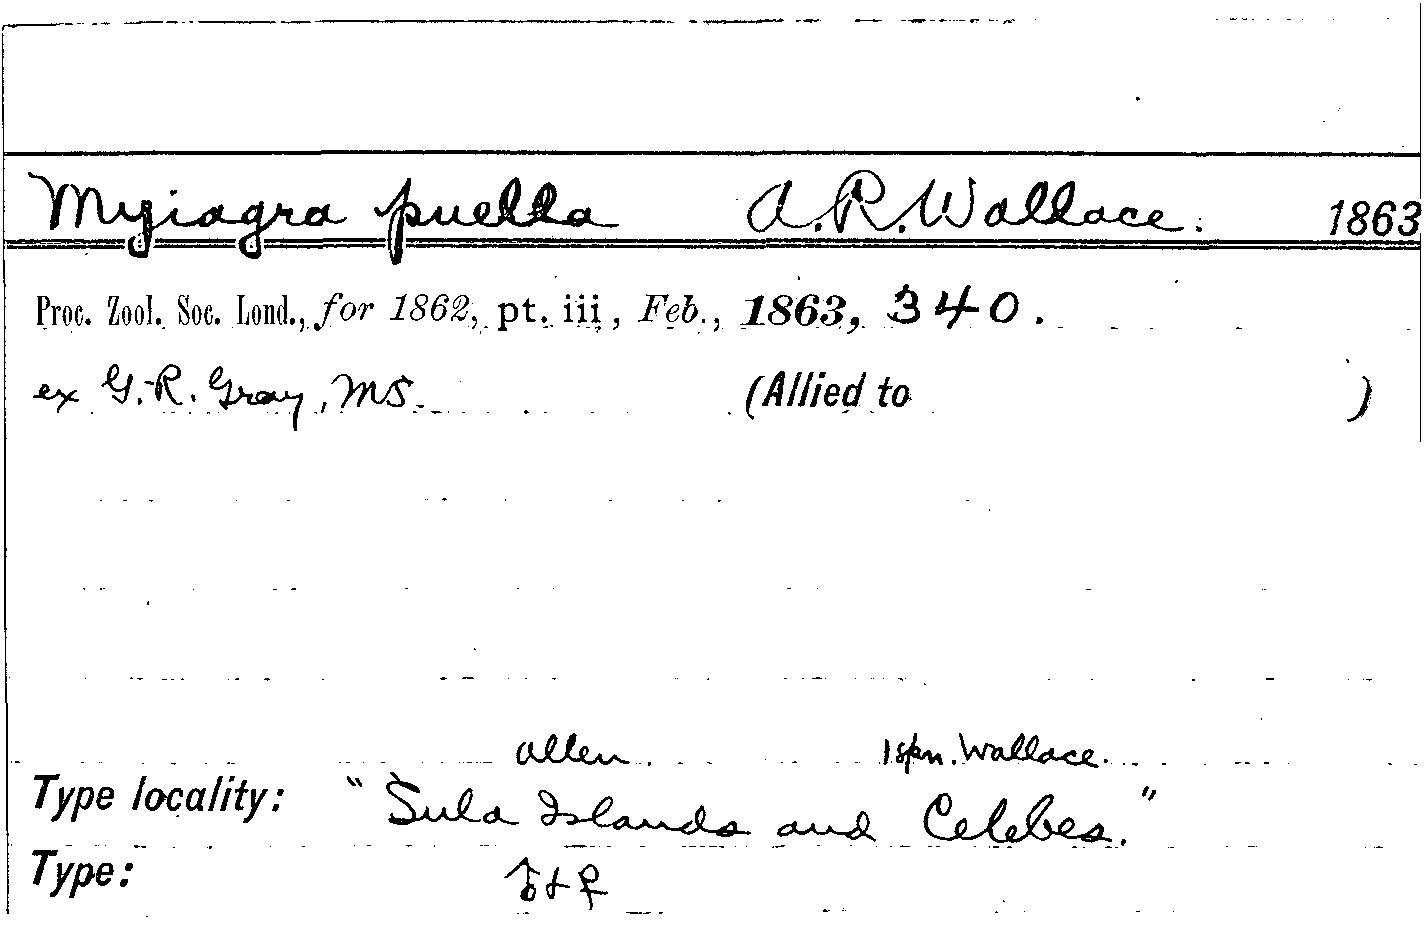 Myiagra puella A. R. Wallace. 1863
Proc. Zool. Soc. Lond., for 1862, pt. iii, Feb., 1863, 340.
ex G. R. Gray, MS. (Allied to )
Allen 1 spn. Wallace.
Type locality: "Sula Islands and Celebes."
Type: ♂ + ♀